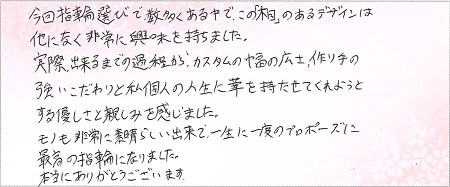 今回指輪選びで、数多くある中で、この「木目」のあるデザインは
他になく非常に興味を持ちました。
実際、出来るまでの過程から、カスタムの幅の広さ、作り手の
強いこだわりと私個人の人生に華を持たせてくれようと
する優しさと親しみを感じました。
モノも非常に素晴らしい出来で、一生に一度のプロポーズに
最高の指輪になりました。
本当にありがとうございます。